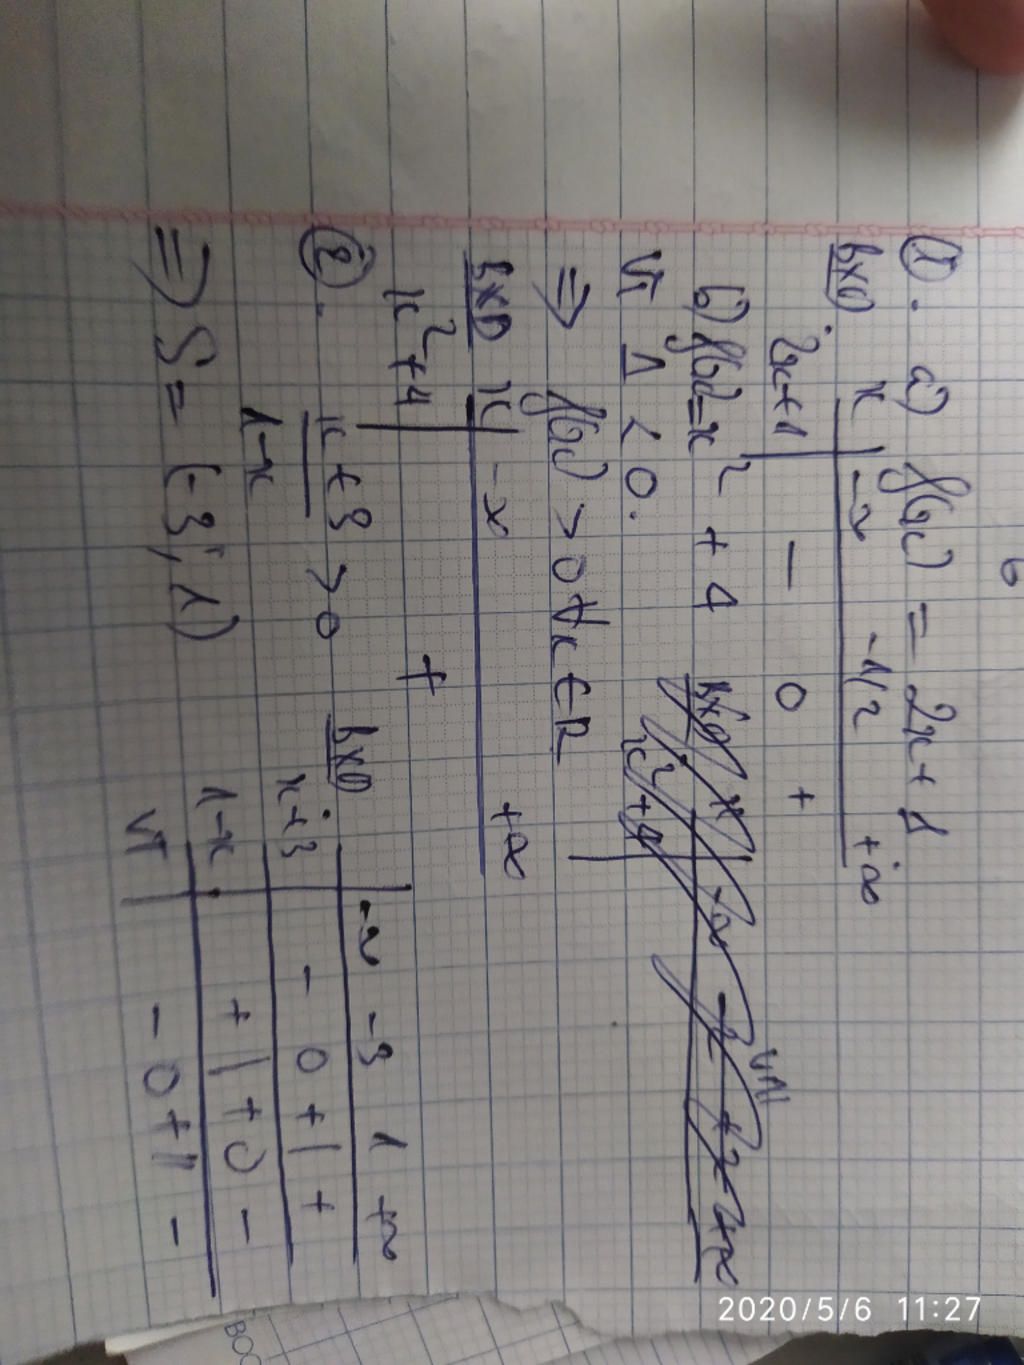 6
①. a) f(x) = 2x+1
BXD x | -∞ -1/2 +∞
2x+1 | - 0 +
b) f(x)=x² + 4
VT Δ < 0.
⇒ f(x) > 0 ∀x ∈ R
BXD x | -∞ +∞
x²+4 | +
②. x+3 / 1-x > 0
BXD | -∞ -3 1 +∞
x+3 | - 0 + | +
1-x | + | + 0 -
VT | - 0 + || -
⇒ S = (-3; 1)
2020/5/6 11:27